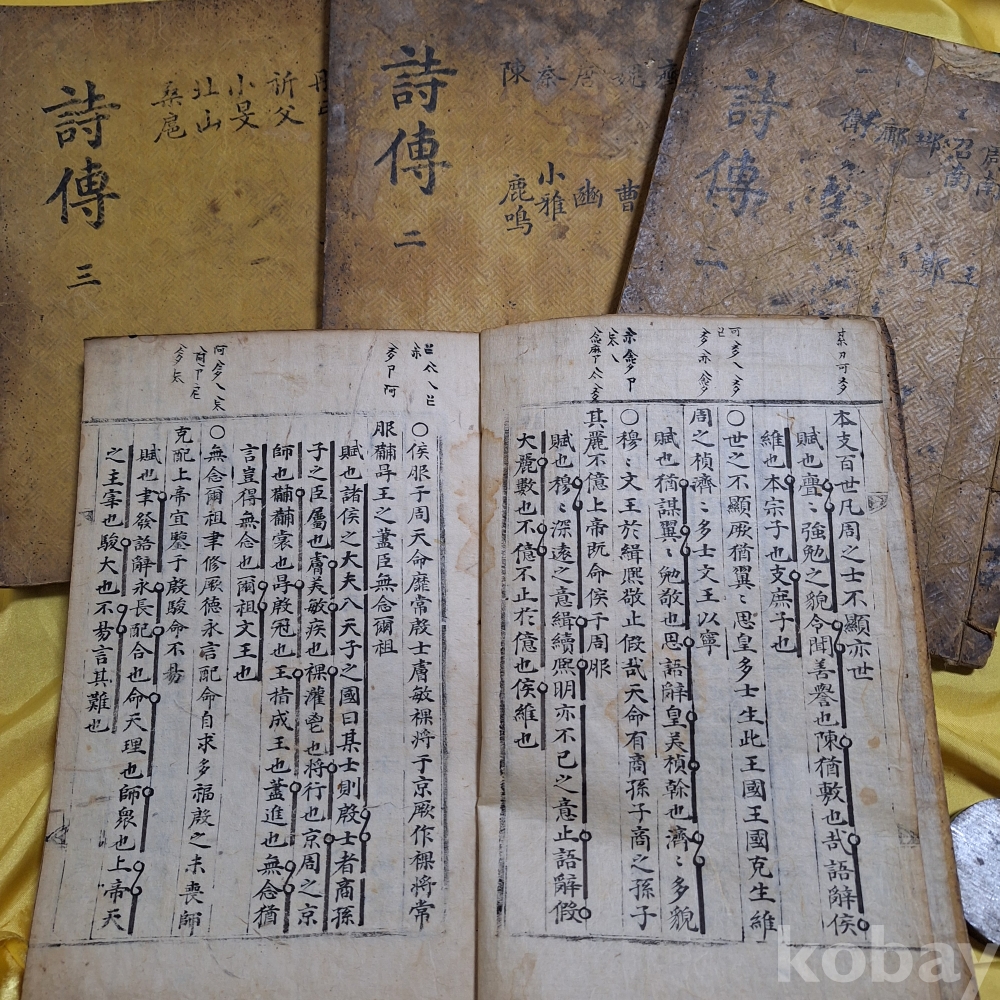 詩傳
三
祈父
小旻
北山
桑扈
詩傳
二
唐
秦
陳
曹
豳
小雅
鹿鳴
詩傳
一
周南
召南
邶
鄘
衛
王
鄭
本支百世凡周之士不顯亦世
賦也亹〻強勉之貌令聞善譽也陳猶敷也哉語辭侯
維也本宗子也支庶子也
○世之不顯厥猶翼〻思皇多士生此王國王國克生維
周之楨濟〻多士文王以寧
賦也猶謀翼〻勉敬也思語辭皇美楨榦也濟〻多貌
○穆〻文王於緝熙敬止假哉天命有商孫子商之孫子
其麗不億上帝旣命侯于周服
賦也穆〻深遠之意緝續熙明亦不已之意止語辭假
大麗數也不億不止於億也侯維也
○侯服于周天命靡常殷士膚敏祼將于京厥作祼將常
服黼冔王之藎臣無念爾祖
賦也諸侯之大夫入天子之國曰某士則殷士者商孫
子之臣屬也膚美敏疾也祼灌鬯也將行也京周之京
師也黼黼裳也冔殷冠也王指成王也藎進也無念猶
言豈得無念也爾祖文王也
○無念爾祖聿修厥德永言配命自求多福殷之未喪師
克配上帝宜鑒于殷駿命不易
賦也聿發語辭永長配合也命天理也師眾也上帝天
之主宰也駿大也不易言其難也
kobay